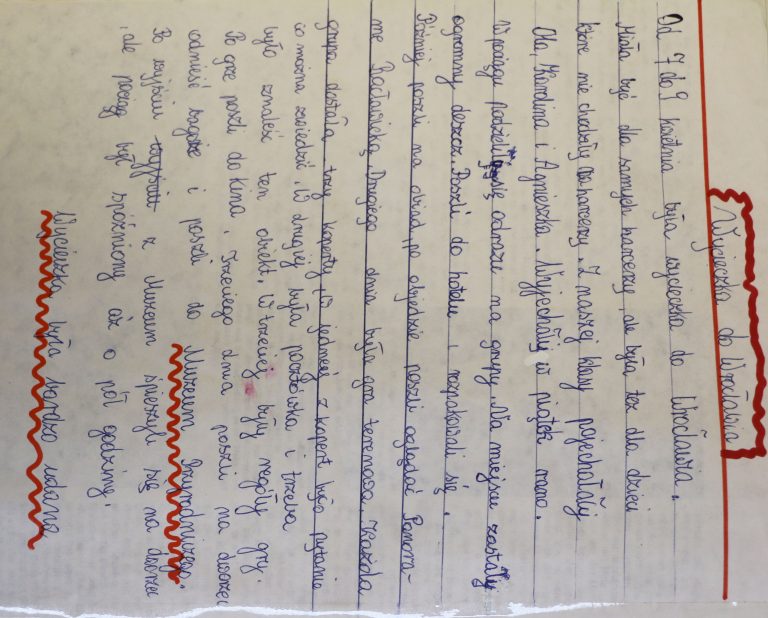 Wycieczka do Wrocławia
Od 7 do 9 kwietnia była wycieczka do Wrocławia.
Miała być dla samych harcerzy, ale była też dla dzieci
które nie chodziły na harcerzy. Z naszej klasy pojechały
Ola, Karolina i Agnieszka. Wyjechały w piątek rano.
W pociągu podzielili się odrazu na grupy. Na miejscu zastały
ogromny deszcz. Poszli do hotelu i rozpakowali się.
Później poszli na obiad, po obiedzie poszli oglądać Panora-
me Racławicką. Drugiego dnia była gra terenowa. Każda
grupa dostała trzy koperty. W jednej z kopert było pytanie
co można zwiedzić. W drugiej była pocztówka i trzeba
było znaleść ten obiekt. W trzeciej były reguły gry.
Po grze poszli do kina. Trzeciego dnia poszli na dworzec
odnieść bagaże i poszli do Muzeum Przyrodniczego.
Po wyjściu wyjściu z Muzeum śpieszyli się na dworzec
, ale pociąg był spóźniony aż o pół godziny.
Wycieczka była bardzo udana